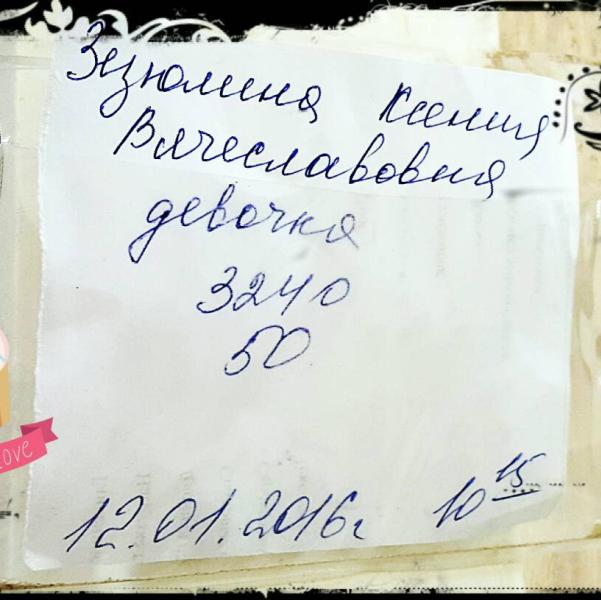 Зизюлина Ксения
Вячеславовна
девочка
3240
50
12.01.2016г 10 15
love